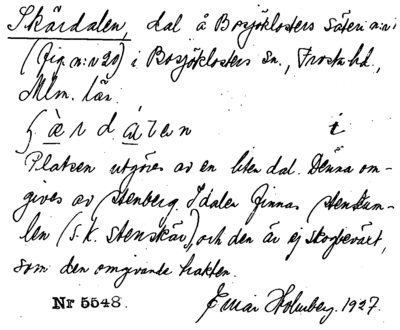 Skärdalen, dal å Bosjöklosters säteri n:r 1
(fig. n:r 20) i Bosjöklosters sn., Frosta hd.,
Mlm. län.
ʃæ̀rdálen i
Platsen utgöres av en liten dal. Denna om-
gives av stenberg. I dalen finnas stenkum-
len (s.k. stenskär), och den är ej skogbeväxt,
som den omgivande trakten.
Nr 5548. Einar Holmberg. 1927.